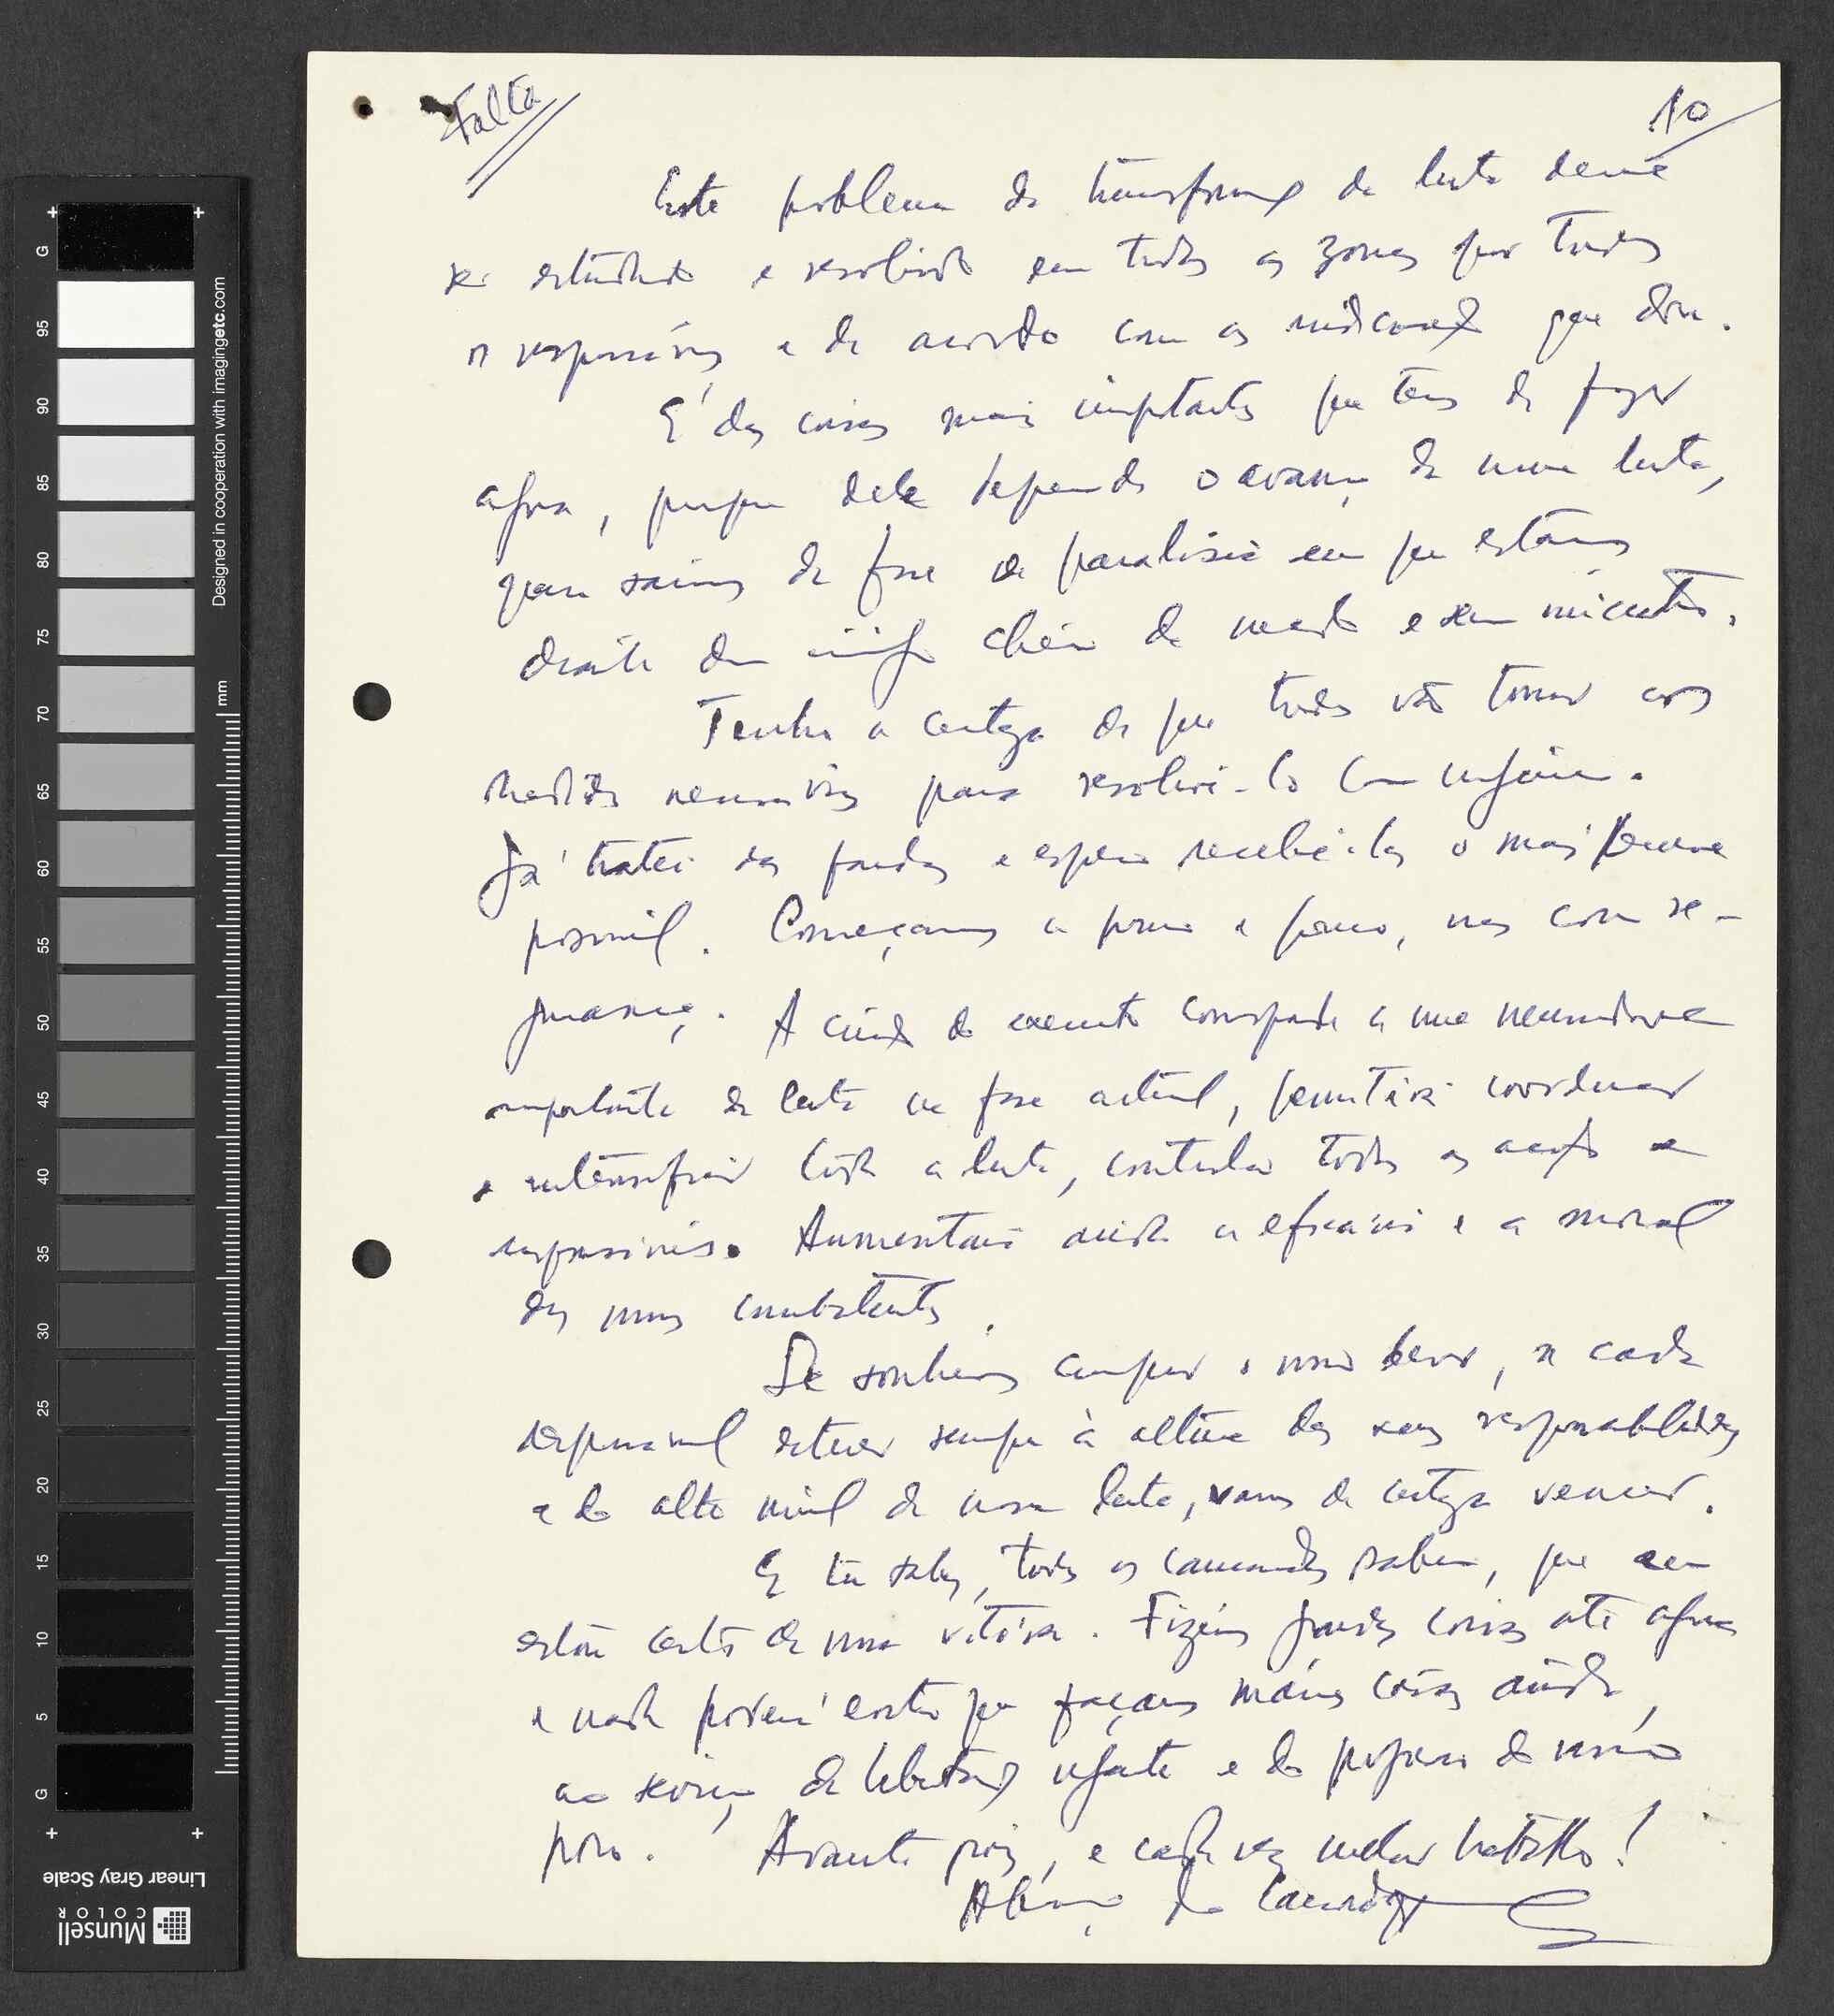 Falta
10
Este problema da transformação da luta deve
ser estudado e resolvido em todas as zonas por todos
os responsáveis e de acordo com as indicações que dou.
É das coisas mais importantes que temos de fazer
agora, porque dele depende o avanço da nossa luta,
para sairmos da fase de paralisia em que estamos
diante dum inimigo cheio de medo e sem iniciativa.
Tenho a certeza de que todos vão tomar as
medidas necessárias para resolvê-lo com urgência.
Já tratei das fardas e espero recebê-las o mais breve
possível. Começamos a pouco e pouco, mas com se-
gurança. A criação do exército corresponde a uma necessidade
importante da luta na fase actual, permitirá coordenar
e intensificar toda a luta, controlar todas as acções e
responsáveis. Aumentará ainda a eficácia e a moral
dos nossos combatentes.
Se soubermos cumprir o nosso dever, se cada
responsável estiver sempre à altura das suas responsabilidades
e do alto nível da nossa luta, vamos de certeza vencer.
E tu sabes, todos os camaradas sabem, que eu
estou certo da nossa vitória. Fizemos grandes coisas até agora
e nada poderá evitar que façamos mais coisas ainda,
ao serviço da libertação urgente e do progresso do nosso
povo. Avante pois, e cada vez melhor trabalho!
Abraço do camarada
95
90
85
80
75
70
65
60
55
50
45
40
35
30
25
20
15
10
5
G
G
mm
Designed in cooperation with imagingetc.com
Linear Gray Scale
Munsell
COLOR